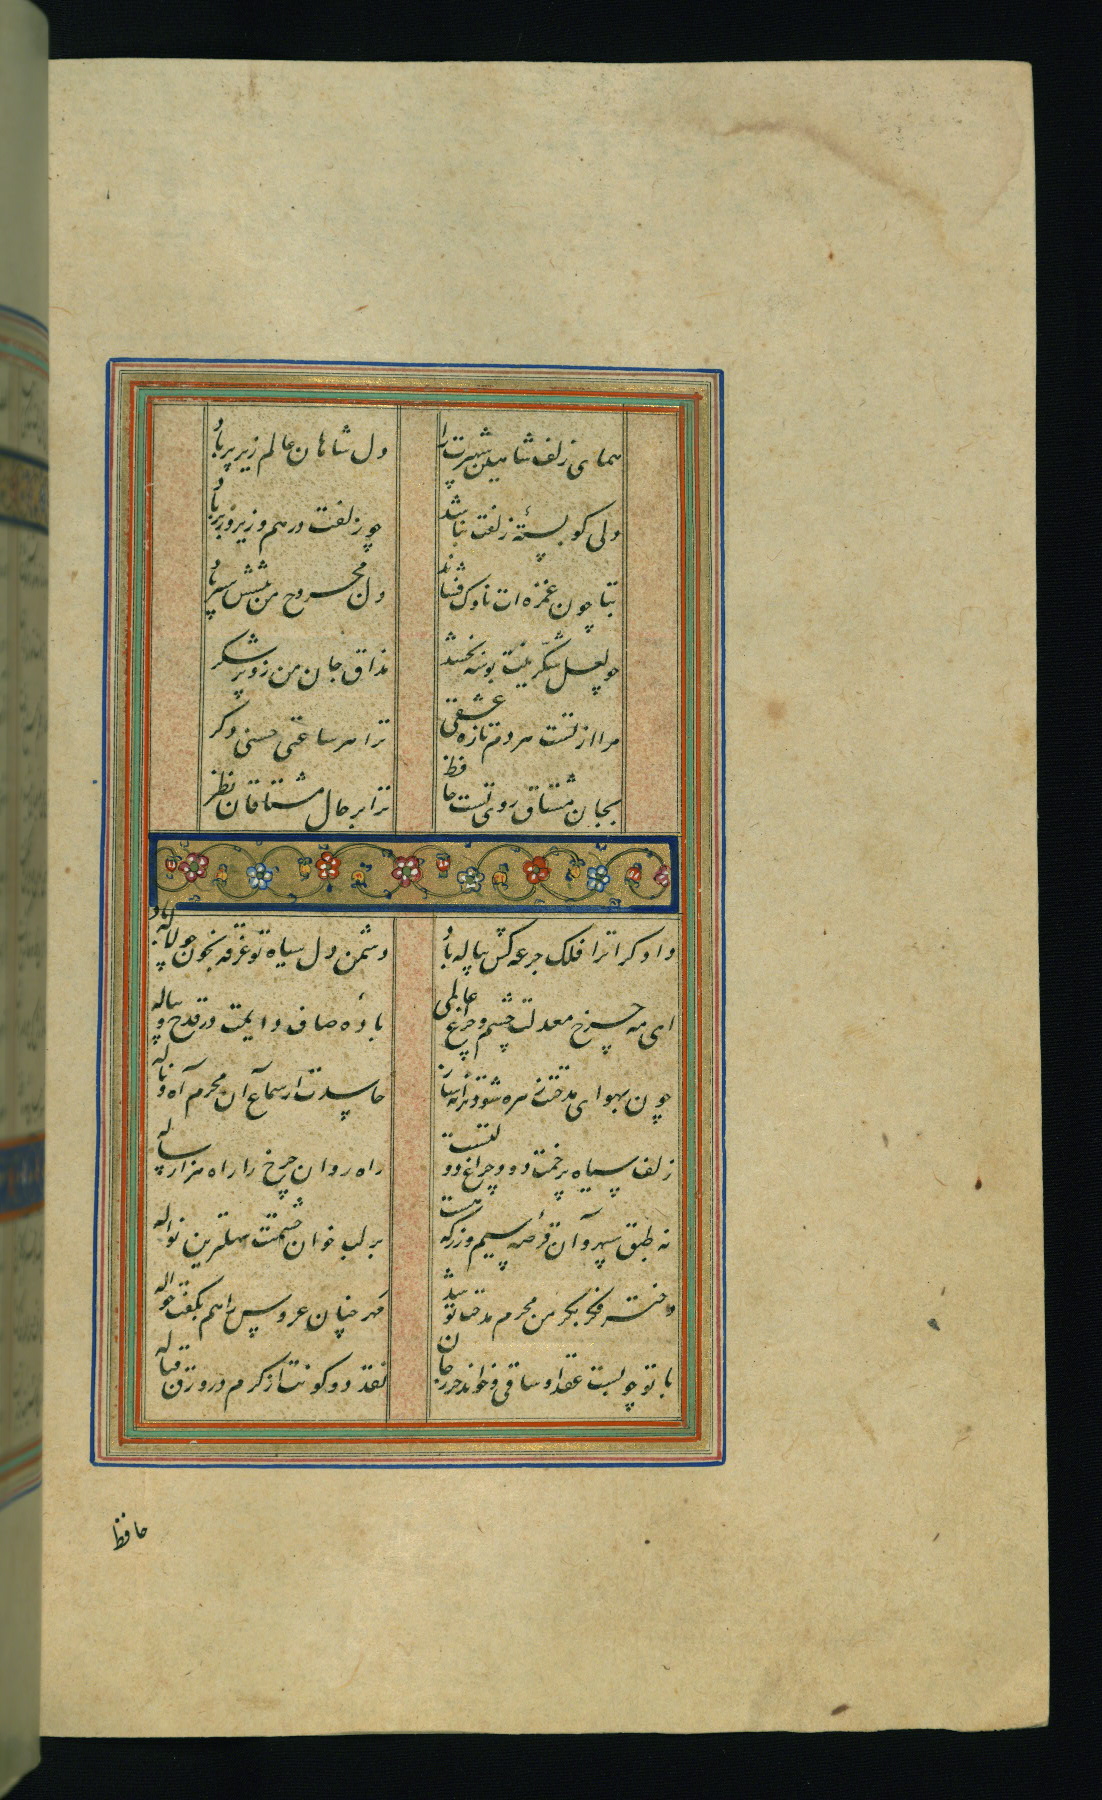 همای زلف شاهین شهپرت را دل شاهان عالم زیر پر باد
دلی کو بستهٔ زلفت نباشد چو زلفت درهم و زیر و زبر باد
بتا چون غمزه‌ات ناوک فشاند دل مجروح من پیشش سپر باد
چو لعل شکرینت بوسه بخشد مذاق جان من زو پر شکر
مرا از تست هر دم تازه عشقی ترا هر ساعتی حسنی دگر
بجان مشتاق روی تست حافظ ترا بر حال مشتاقان نظر
دادگرا ترا فلک جرعه کش پیاله باد دشمن دل سیاه تو غرقه بخون چو لاله باد
ای مه چرخ معدلت چشم و چراغ عالمی بادهٔ صاف دایمت در قدح و پیاله
چون بهوای مدحتت زهره شود ترانه ساز حاسدت از سماع آن محرم آه و ناله
زلف سیاه پرخمت دود چراغ دولتست راه روان چرخ را راه هزار ساله
نه طبق سپهر و آن قرصهٔ سیم و زر که هست بر لب خوان حشمتت سهلترین نواله
دختر فکر بکر من محرم مدحت تو شد مهر چنان عروس را هم بکفت حواله
با تو چو بست عقد او ساقی
حافظ